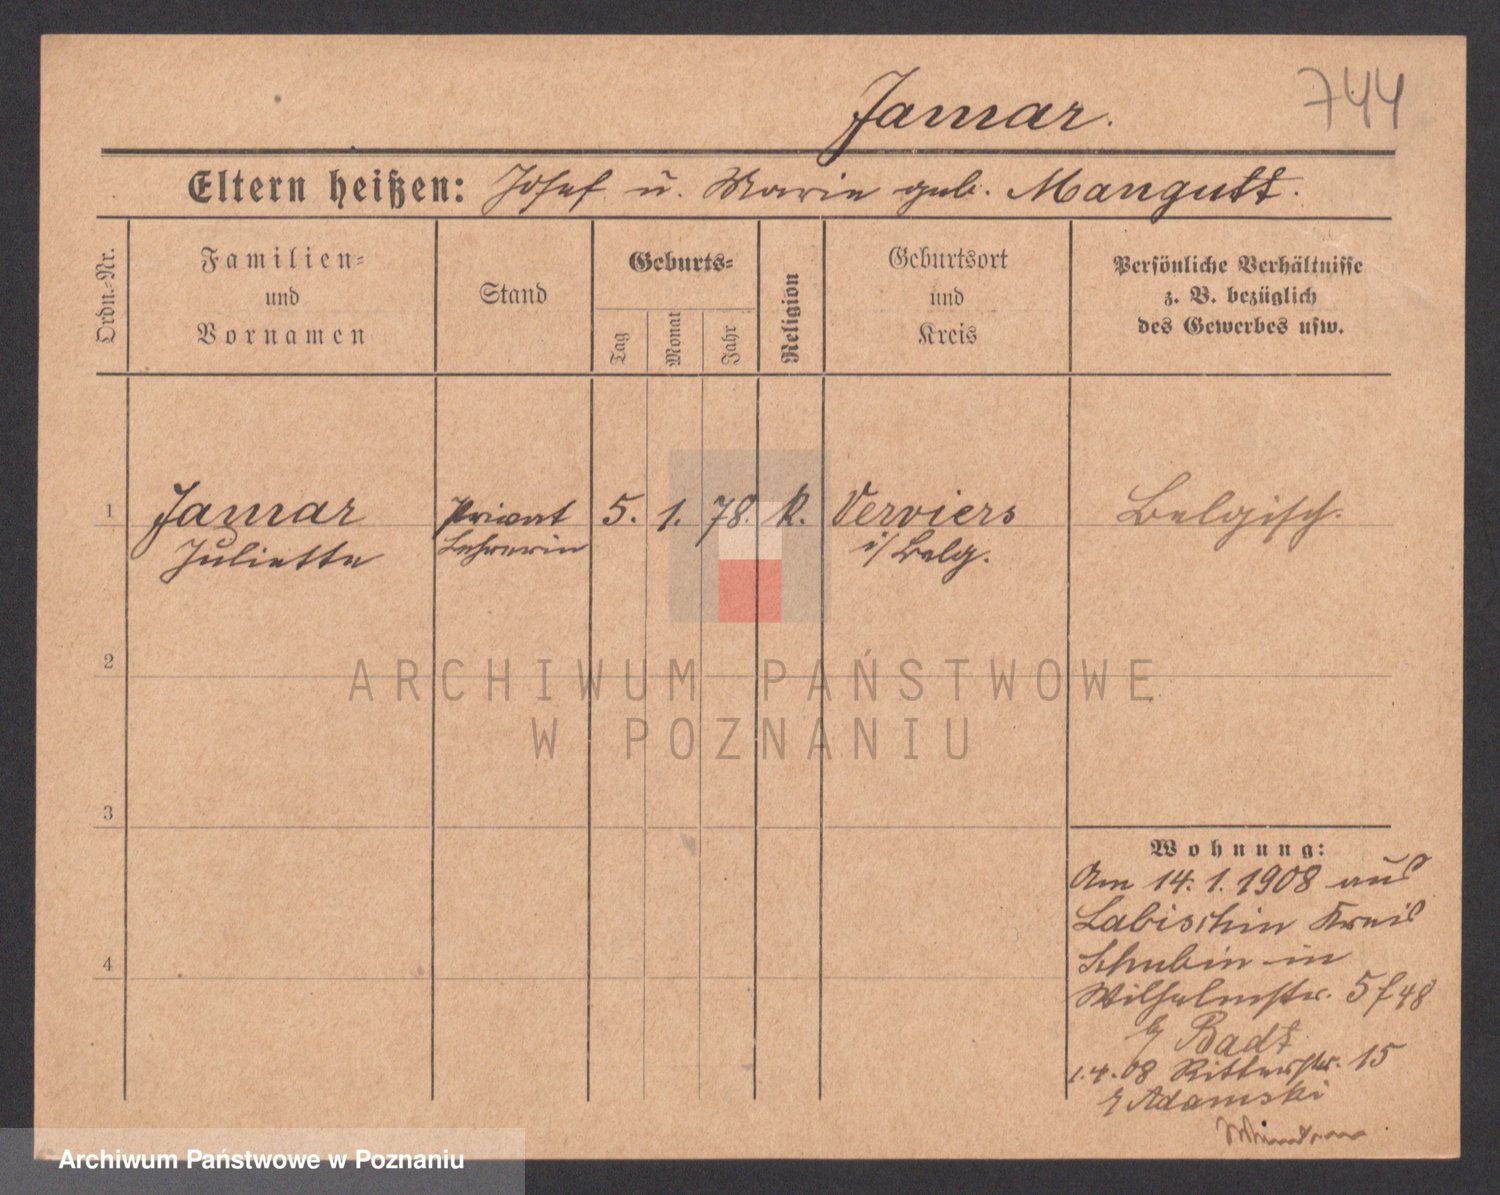 Jamar.
744
Eltern heißen: Josef u. Marie geb. Mangutt.
Ordn.-Nr.
Familien-
und
Vornamen
Stand
Geburts-
Tag
Monat
Jahr
Religion
Geburtsort
und
Kreis
Persönliche Verhältnisse
z. B. bezüglich
des Gewerbes usw.
1
Jamar
Juliette
Privat
Lehrerin
5. 1. 78. k.
Verviers
i/ Belg.
Belgisch.
2
ARCHIWUM PAŃSTWOWE
W POZNANIU
3
4
Wohnung:
Am 14.1.1908 aus
Labischin Kreis
Schubin in
Wilhelmstr. 5
Badt
1.4.08 Ritterstr. 15
Adamski
Archiwum Państwowe w Poznaniu